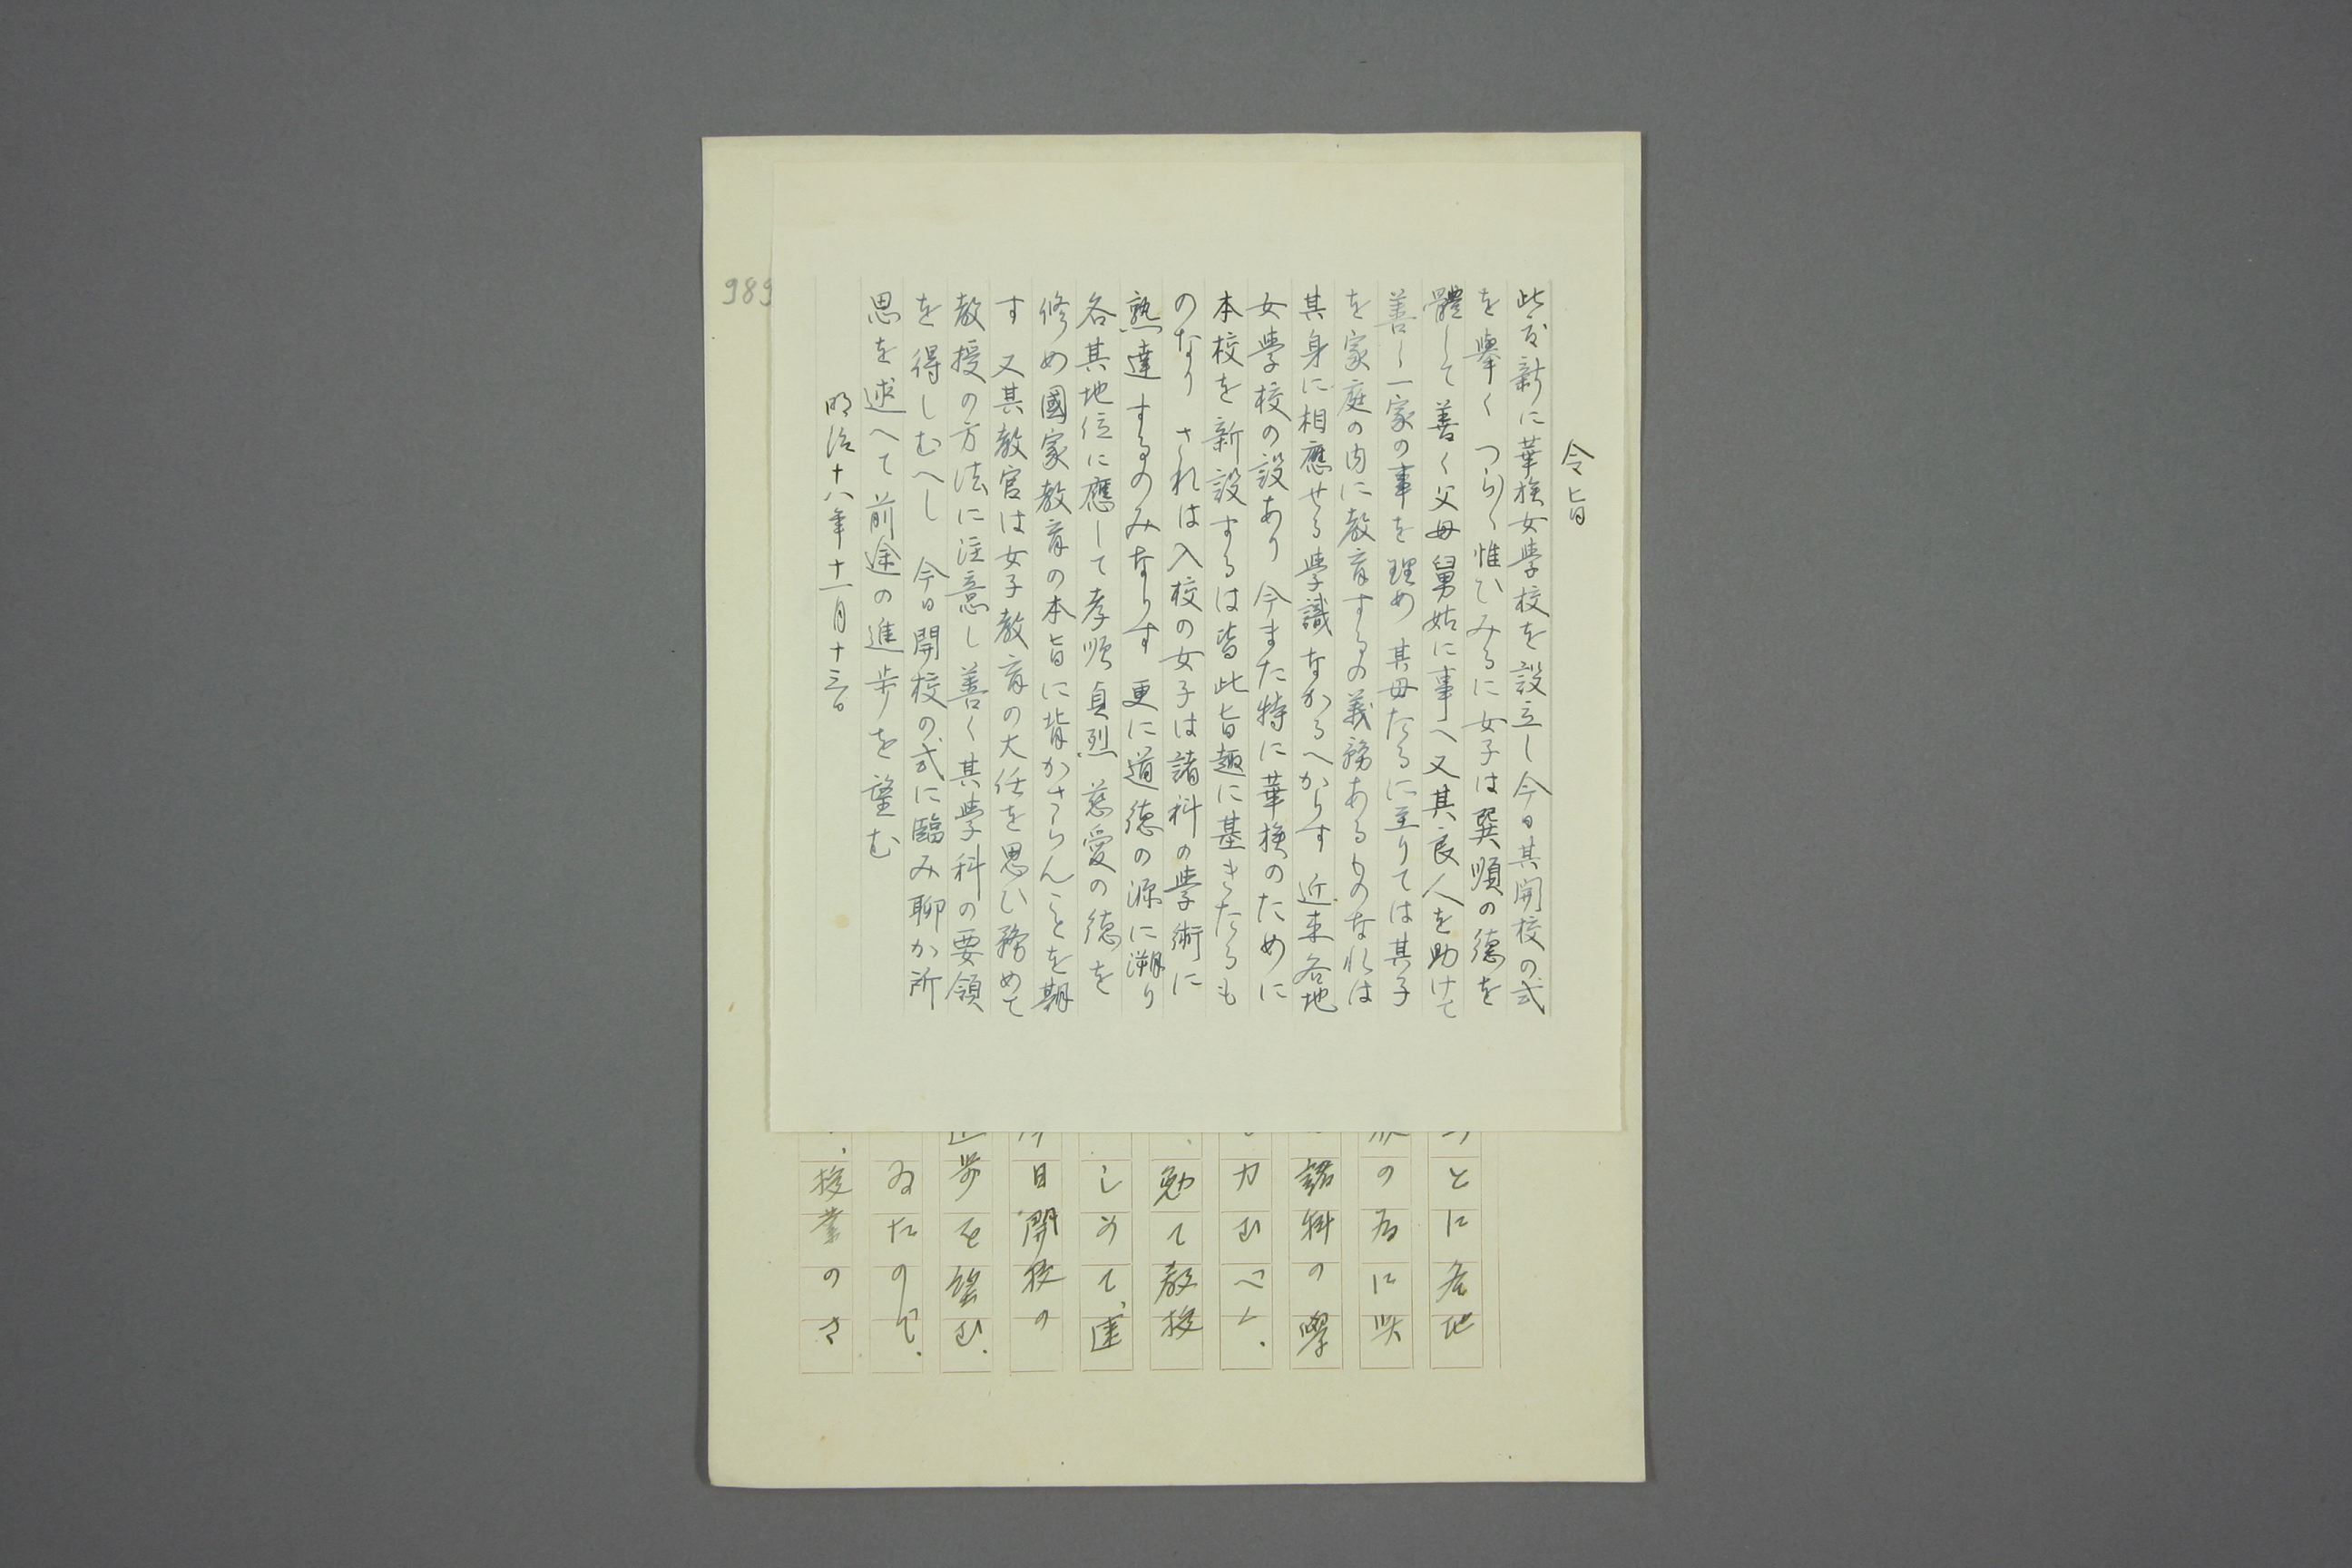 令旨
此度新に華族女學校を設立し今日其開校の式
を擧く つら〱惟ひみるに女子は巽順の德を
體して善く父母舅姑に事へ又其良人を助けて
善く一家の事を理め 其母たるに至りては其子
を家庭の内に敎育するの義務あるものなれは
其身に相應せる學識なかるへからす 近来各地
女學校の設あり 今また特に華族のために
本校を新設するは皆此旨趣に基きたるも
のなり されは入校の女子は諸科の學術に
熟達するのみならす 更に道德の源に溯り
各其地位に應して孝順貞烈慈愛の德を
修め國家敎育の本旨に背かさらんことを期
す 又其敎官は女子敎育の大任を思ひ務めて
敎授の方法に注意し善く其學科の要領
を得しむへし 今日開校の式に臨み聊か所
思を述へて前途の進歩を望む
明治十八年十一月十三日
989
とに各地
の為に
諸科の學
力むべし.
勉て敎授
しめて、達
日開校の
歩を望む.
ゐたので.
授業のさ